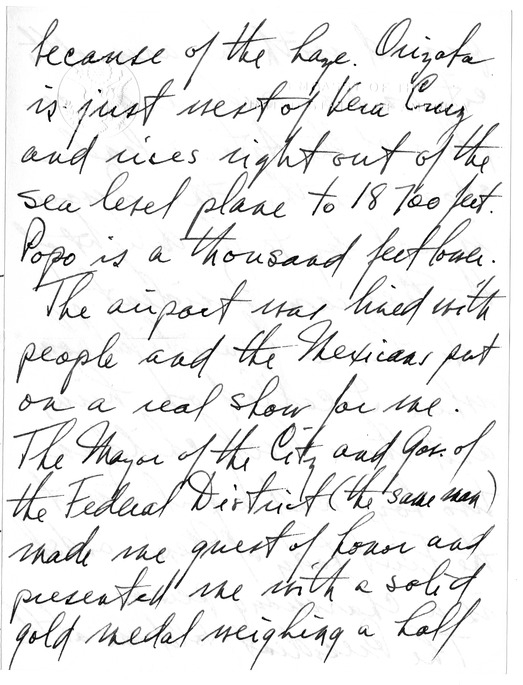 because of the haze. Orizaba
is just west of Vera Cruz
and rises right out of the
sea level plane to 18700 feet.
Popo is a thousand feet lower.
The airport was lined with
people and the Mexicans put
on a real show for me.
The Mayor of the City and Gov. of
the Federal District (the same man)
made me guest of honor and
presented me with a solid
gold medal weighing a half